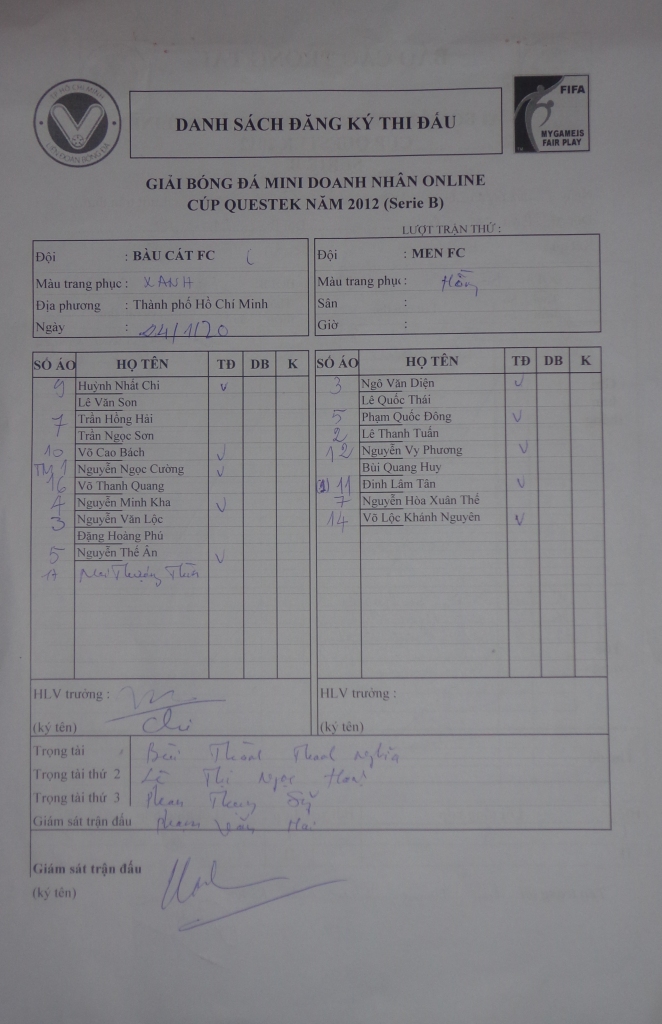 TP HỒ CHÍ MINH
LIÊN ĐOÀN BÓNG ĐÁ
FIFA
MYGAMEIS
FAIR PLAY
DANH SÁCH ĐĂNG KÝ THI ĐẤU
GIẢI BÓNG ĐÁ MINI DOANH NHÂN ONLINE
CÚP QUESTEK NĂM 2012 (Serie B)
LƯỢT TRẬN THỨ :
Đội : BÀU CÁT FC
Màu trang phục : XANH
Địa phương : Thành phố Hồ Chí Minh
Ngày : 24/1/20
Đội : MEN FC
Màu trang phục : Hồng
Sân :
Giờ :
SỐ ÁO HỌ TÊN TĐ DB K
9 Huỳnh Nhất Chi v
Lê Văn Son
7 Trần Hồng Hải
Trần Ngọc Sơn
10 Võ Cao Bách v
TM 1 Nguyễn Ngọc Cường v
16 Võ Thanh Quang
4 Nguyễn Minh Kha v
3 Nguyễn Văn Lộc
Đặng Hoàng Phú
5 Nguyễn Thế Ân v
17
SỐ ÁO HỌ TÊN TĐ DB K
3 Ngô Văn Diện v
Lê Quốc Thái
5 Phạm Quốc Đông v
2 Lê Thanh Tuấn
12 Nguyễn Vy Phương v
Bùi Quang Huy
11 Đinh Lâm Tân v
7 Nguyễn Hòa Xuân Thế
14 Võ Lộc Khánh Nguyên v
HLV trưởng :
(ký tên) Chi
HLV trưởng :
(ký tên)
Trọng tài Bùi Thành Nghĩa
Trọng tài thứ 2 Lê Thị Ngọc
Trọng tài thứ 3 Phan Sỹ
Giám sát trận đấu Phạm Văn Hai
Giám sát trận đấu
(ký tên)